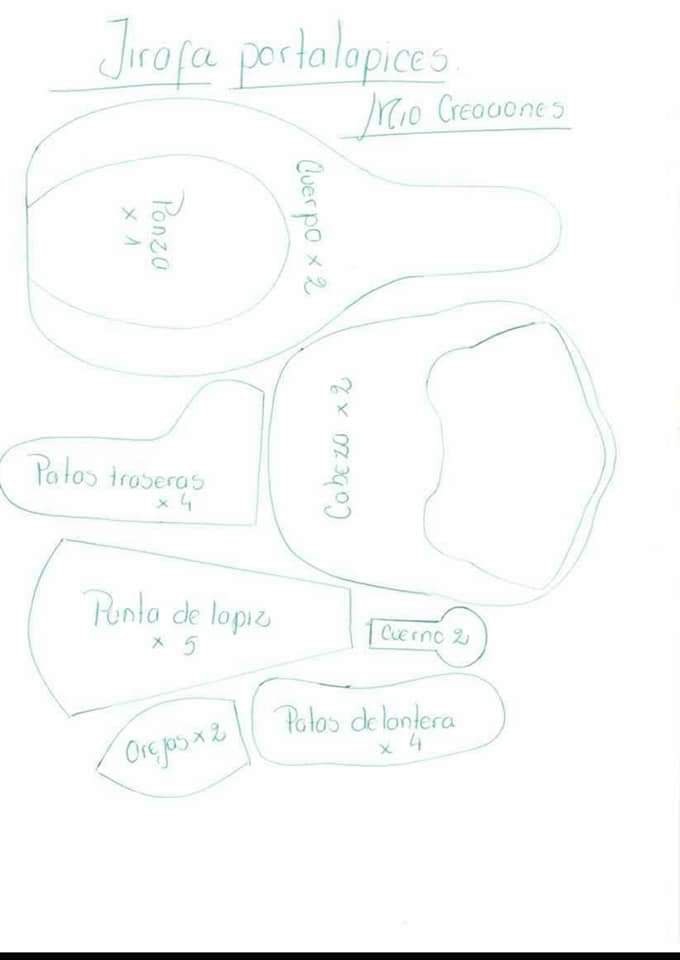 Jirafa portalapices.
Mio Creaciones
Cuerpo x 2
Panza
x 1
Cabeza x 2
Patas traseras
x 4
Punta de lapiz
x 5
Cuerno 2
Orejas x 2
Patas delantera
x 4